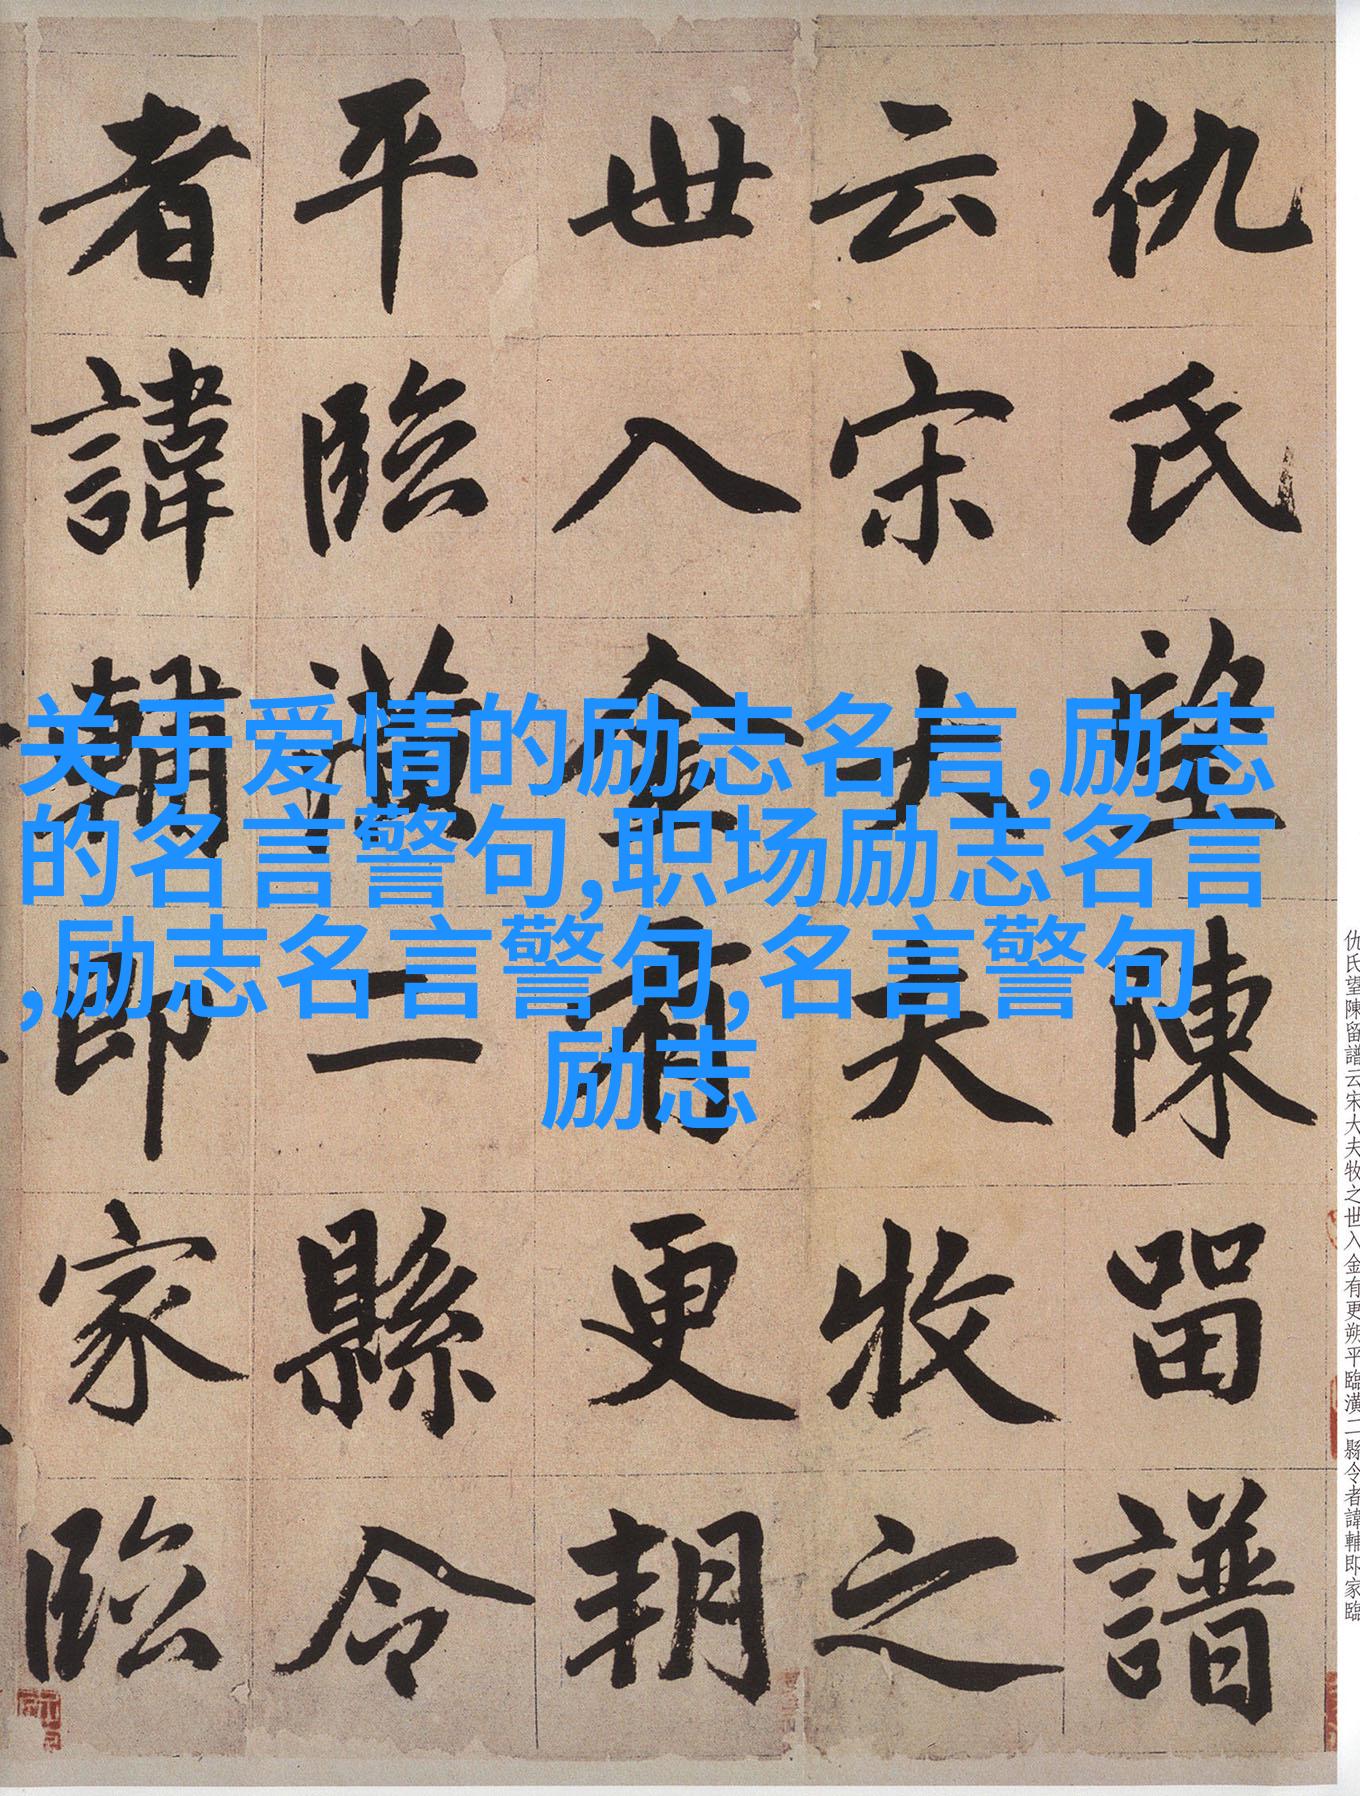 仇氏望陳留譜
云宋大夫牧之
世入金有更朔
平臨潢二縣令
者諱輔即家臨
关于爱情的励志名言,励志
的名言警句,职场励志名言
,励志名言警句,名言警句
励志
仇氏望陳留譜云宋大夫牧之世入金有更朔平臨潢二縣令者諱輔即家臨